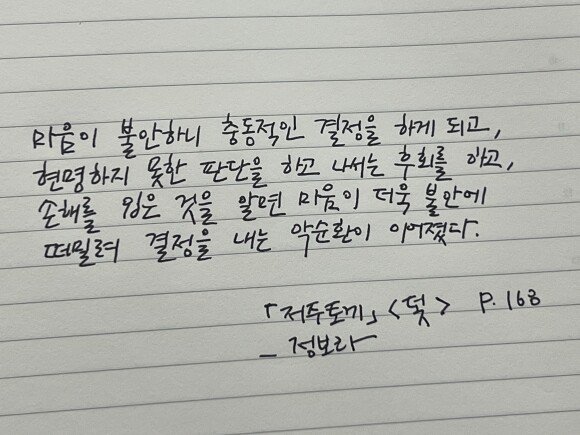 마음이 불안하니 충동적인 결정을 하게 되고,
현명하지 못한 판단을 하고 나서는 후회를 하고,
손해를 입은 것을 알면 마음이 더욱 불안에
떠밀려 결정을 내는 악순환이 이어졌다.
「저주토끼」 <덫> P. 168
_ 정보라